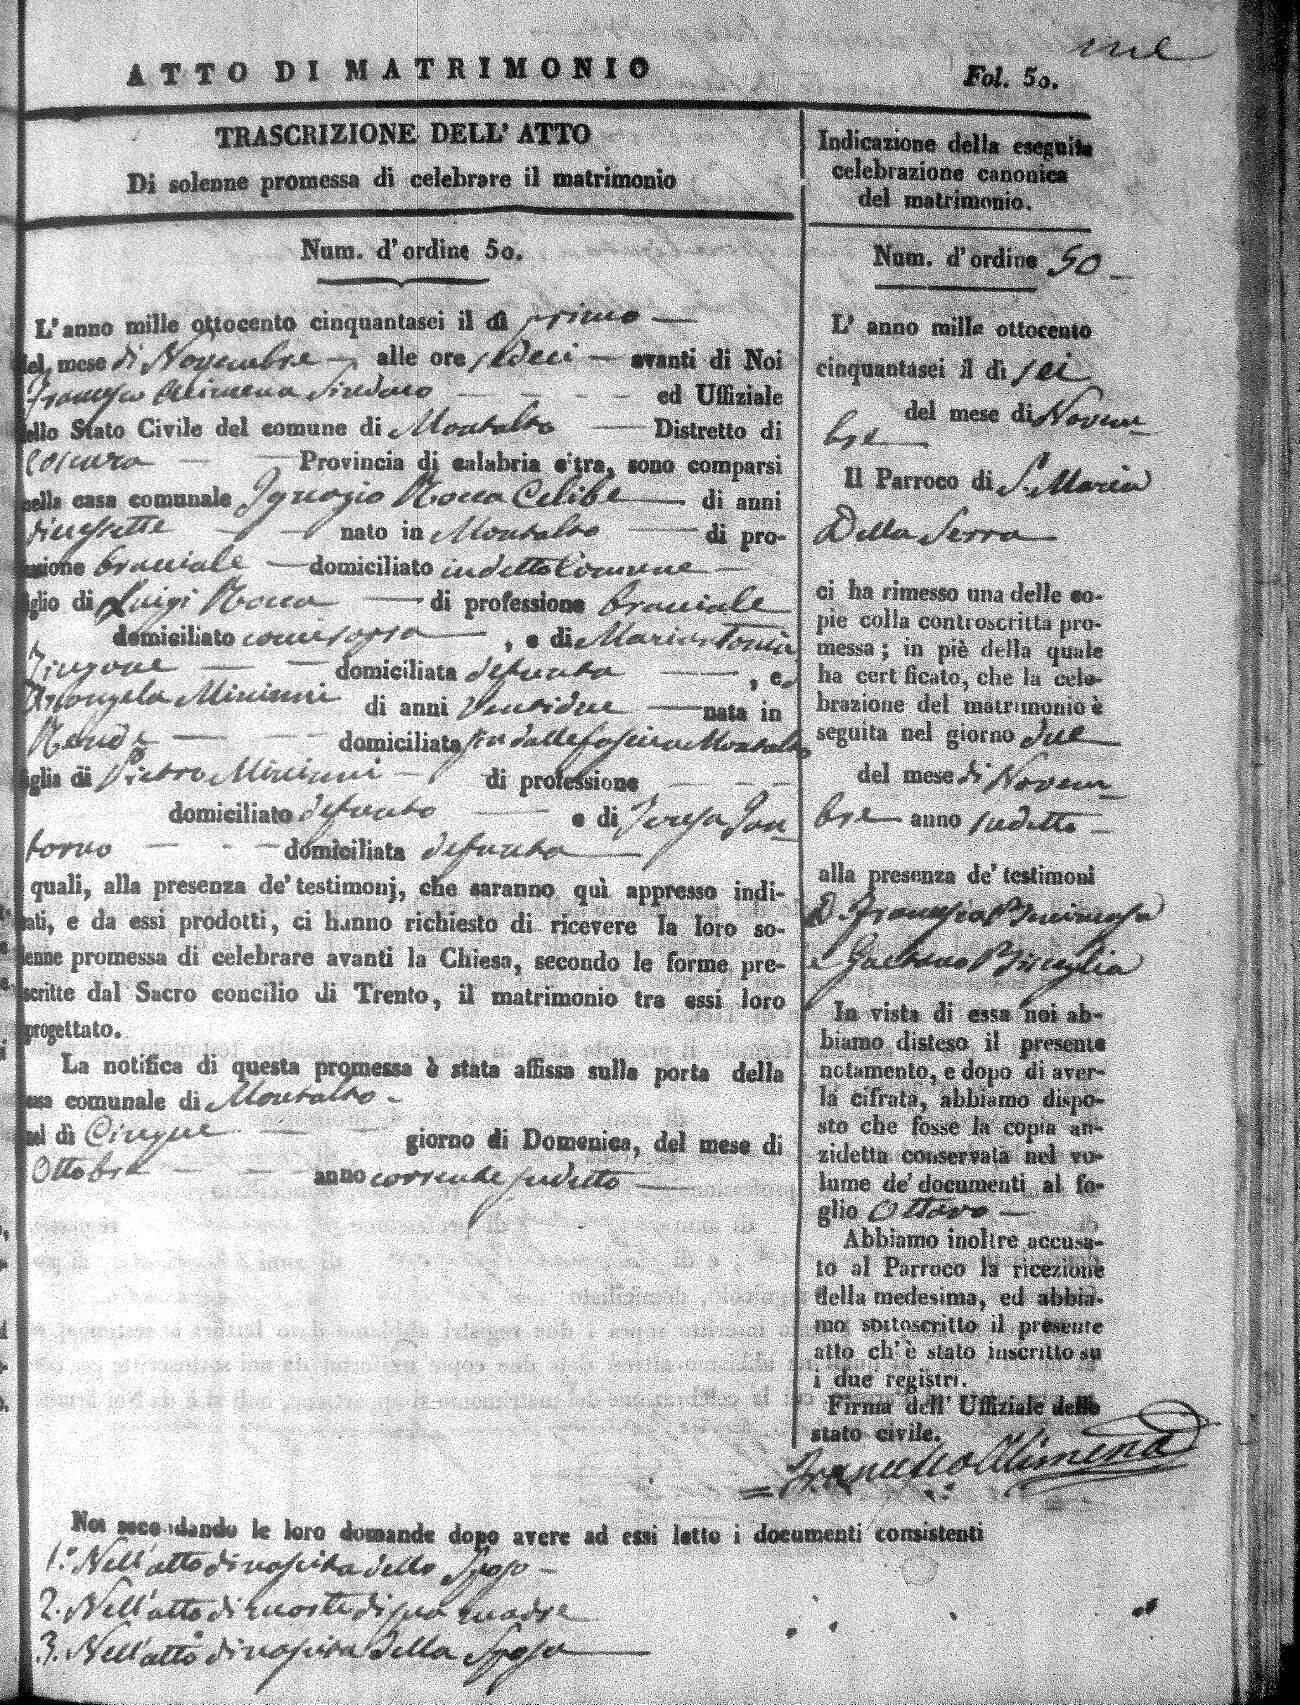 me
ATTO DI MATRIMONIO
Fol. 50.
TRASCRIZIONE DELL' ATTO
Di solenne promessa di celebrare il matrimonio
Num. d'ordine 50.
L'anno mille ottocento cinquantasei il dì primo
del mese di Novembre alle ore sedeci avanti di Noi
Francesco Alimena Sindaco ed Uffiziale
ello Stato Civile del comune di Montalto Distretto di
Cosenza Provincia di calabria citra, sono comparsi
nella casa comunale Ignazio Rocca Celibe di anni
diciassette nato in Montalto di pro-
ssione bracciale domiciliato in detto Comune
iglio di Luigi Rocca di professione bracciale
domiciliato come sopra, e di Mariantonia
Zingone domiciliata defunta, ed
Arcangela Micianni di anni Ventidue nata in
Rende domiciliata sin dalle fascie a Montalto
iglia di Pietro Micianni di professione
domiciliato defunto e di Teresa
torno domiciliata defunta
quali, alla presenza de' testimonj, che saranno quì appresso indi-
ati, e da essi prodotti, ci hanno richiesto di ricevere la loro so-
lenne promessa di celebrare avanti la Chiesa, secondo le forme pre-
scritte dal Sacro concilio di Trento, il matrimonio tra essi loro
progettato.
La notifica di questa promessa è stata affissa sulla porta della
asa comunale di Montalto
nel dì Cinque giorno di Domenica, del mese di
Ottobre anno corrente sudetto
Indicazione della eseguita
celebrazione canonica
del matrimonio.
Num. d'ordine 50
L' anno mille ottocento
cinquantasei il dì sei
del mese di Novem
bre
Il Parroco di S. Maria
Della Serra
ci ha rimesso una delle co-
pie colla controscritta pro-
messa; in piè della quale
ha cert ficato, che la cele-
brazione del matrimonio è
seguita nel giorno due
del mese di Novem
bre anno sudetto
alla presenza de' testimoni
D. Francesco
e Gaetano
In vista di essa noi ab-
biamo disteso il presente
notamento, e dopo di aver-
la cifrata, abbiamo dispo-
sto che fosse la copia an-
zidetta conservata nel vo-
lume de' documenti al fo-
glio Ottavo
Abbiamo inoltre accusa-
to al Parroco la ricezione
della medesima, ed abbia-
mo sottoscritto il presente
atto ch'è stato inscritto su
i due registri.
Firma dell' Uffiziale dello
stato civile.
Francesco Alimena
Noi secondando le loro domande dopo avere ad essi letto i documenti consistenti
1.° Nell'atto di nascita dello Sposo
2. Nell'atto di morte di sua madre
3. Nell'atto di nascita della Sposa